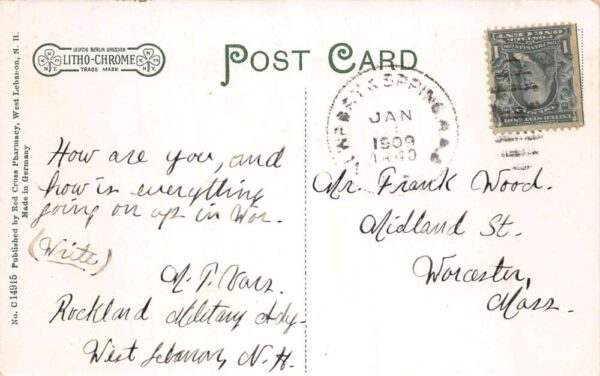 No. C14915 Published by Red Cross Pharmacy, West Lebanon, N. H.
Made in Germany
LEIPZIG BERLIN DRESDEN
LITHO-CHROME
TRADE MARK
POST CARD
JAN
1909
How are you, and
how is everything
going on up in Wor.
(Write)
Rockland Military Ady.
West Lebanon, N. H.
Mr. Frank Wood.
Midland St.
Worcester,
Mass.